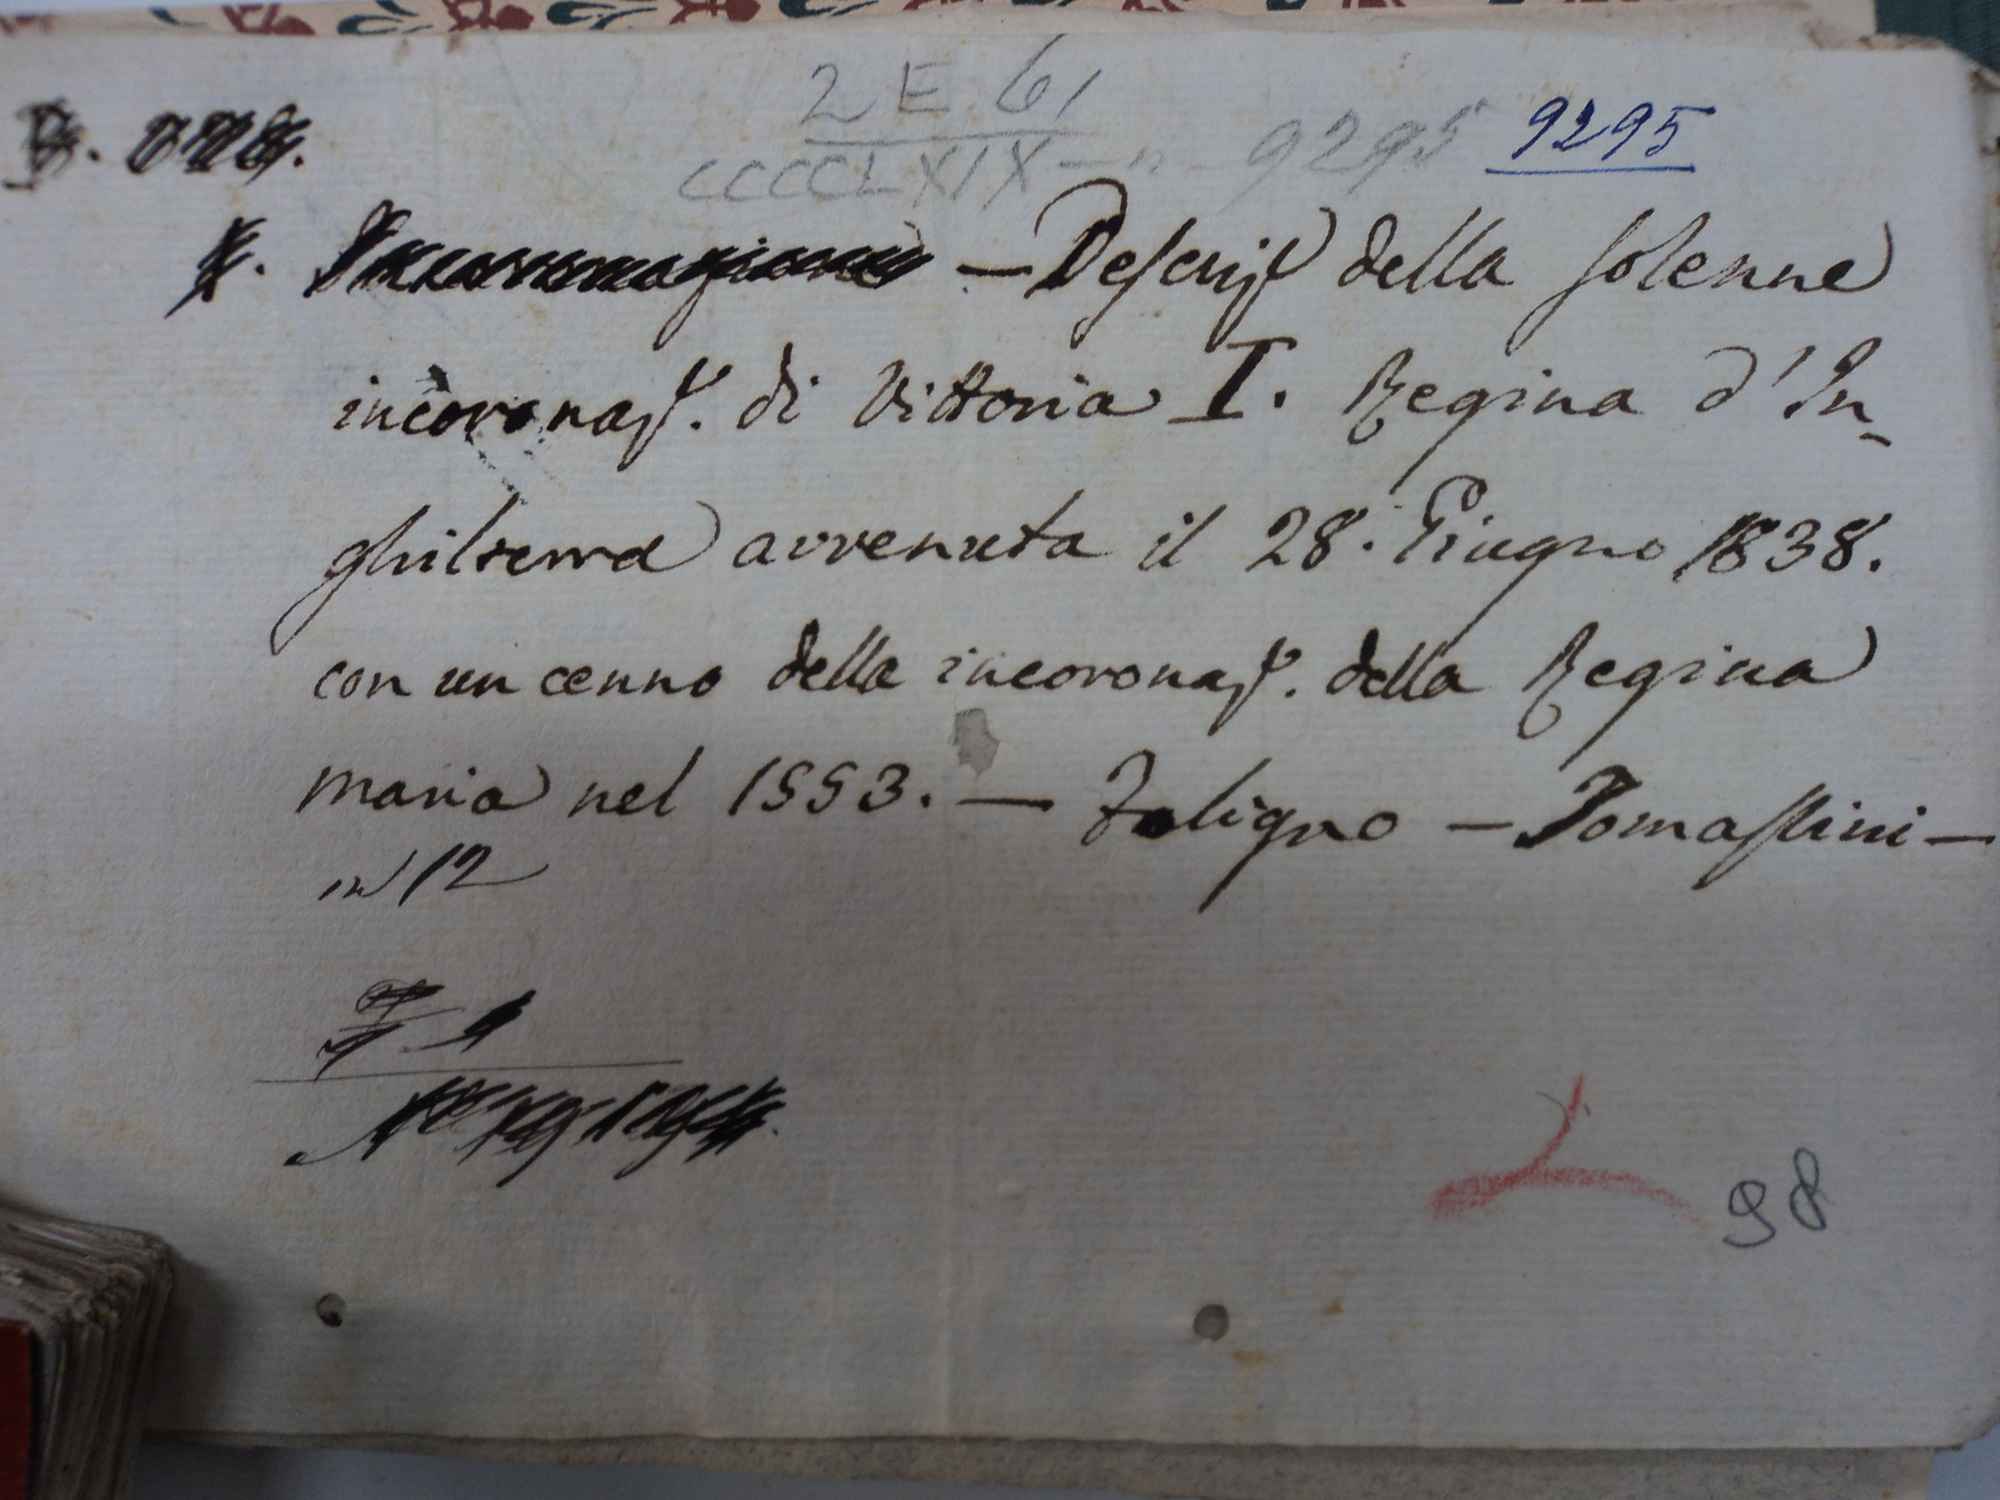 2 E 61
CCCCLXIX - n - 9295 9295
- Descriz della solenne
incoronaz. di Vittoria I. Regina d'In-
ghilterra avvenuta il 28. Giugno 1838.
con un cenno della incoronaz. della Regina
Maria nel 1553. - Foligno - Tomassini -
in 12
98